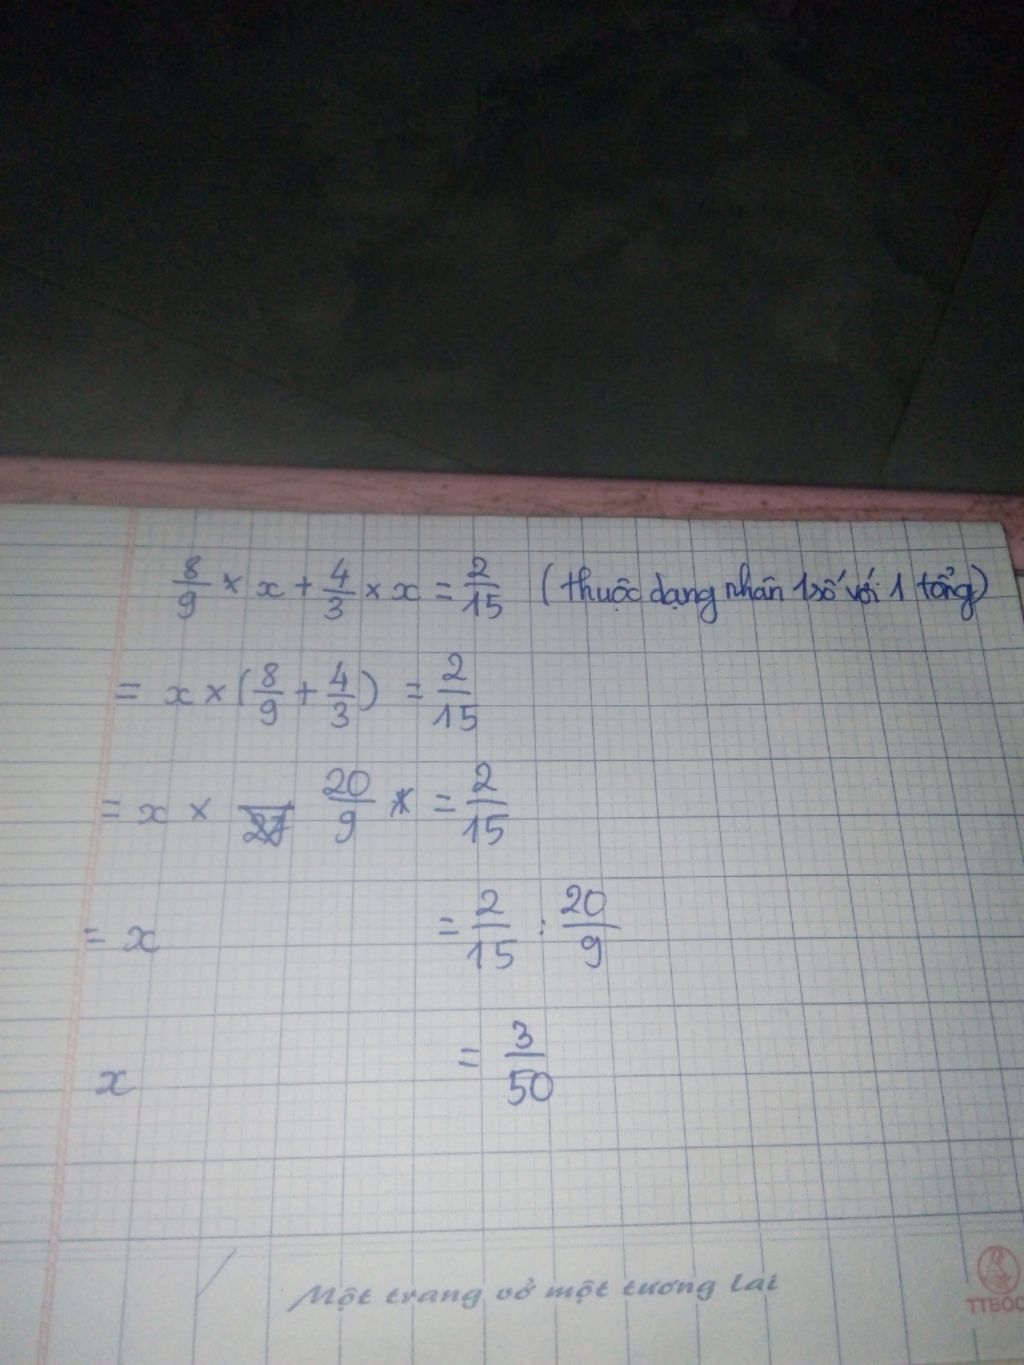 8/9 × x + 4/3 × x = 2/15 (thuộc dạng nhân 1 số với 1 tổng)
= x × (8/9 + 4/3) = 2/15
= x × 20/9 = 2/15
= x = 2/15 : 20/9
x = 3/50
Một trang vở một tương lai